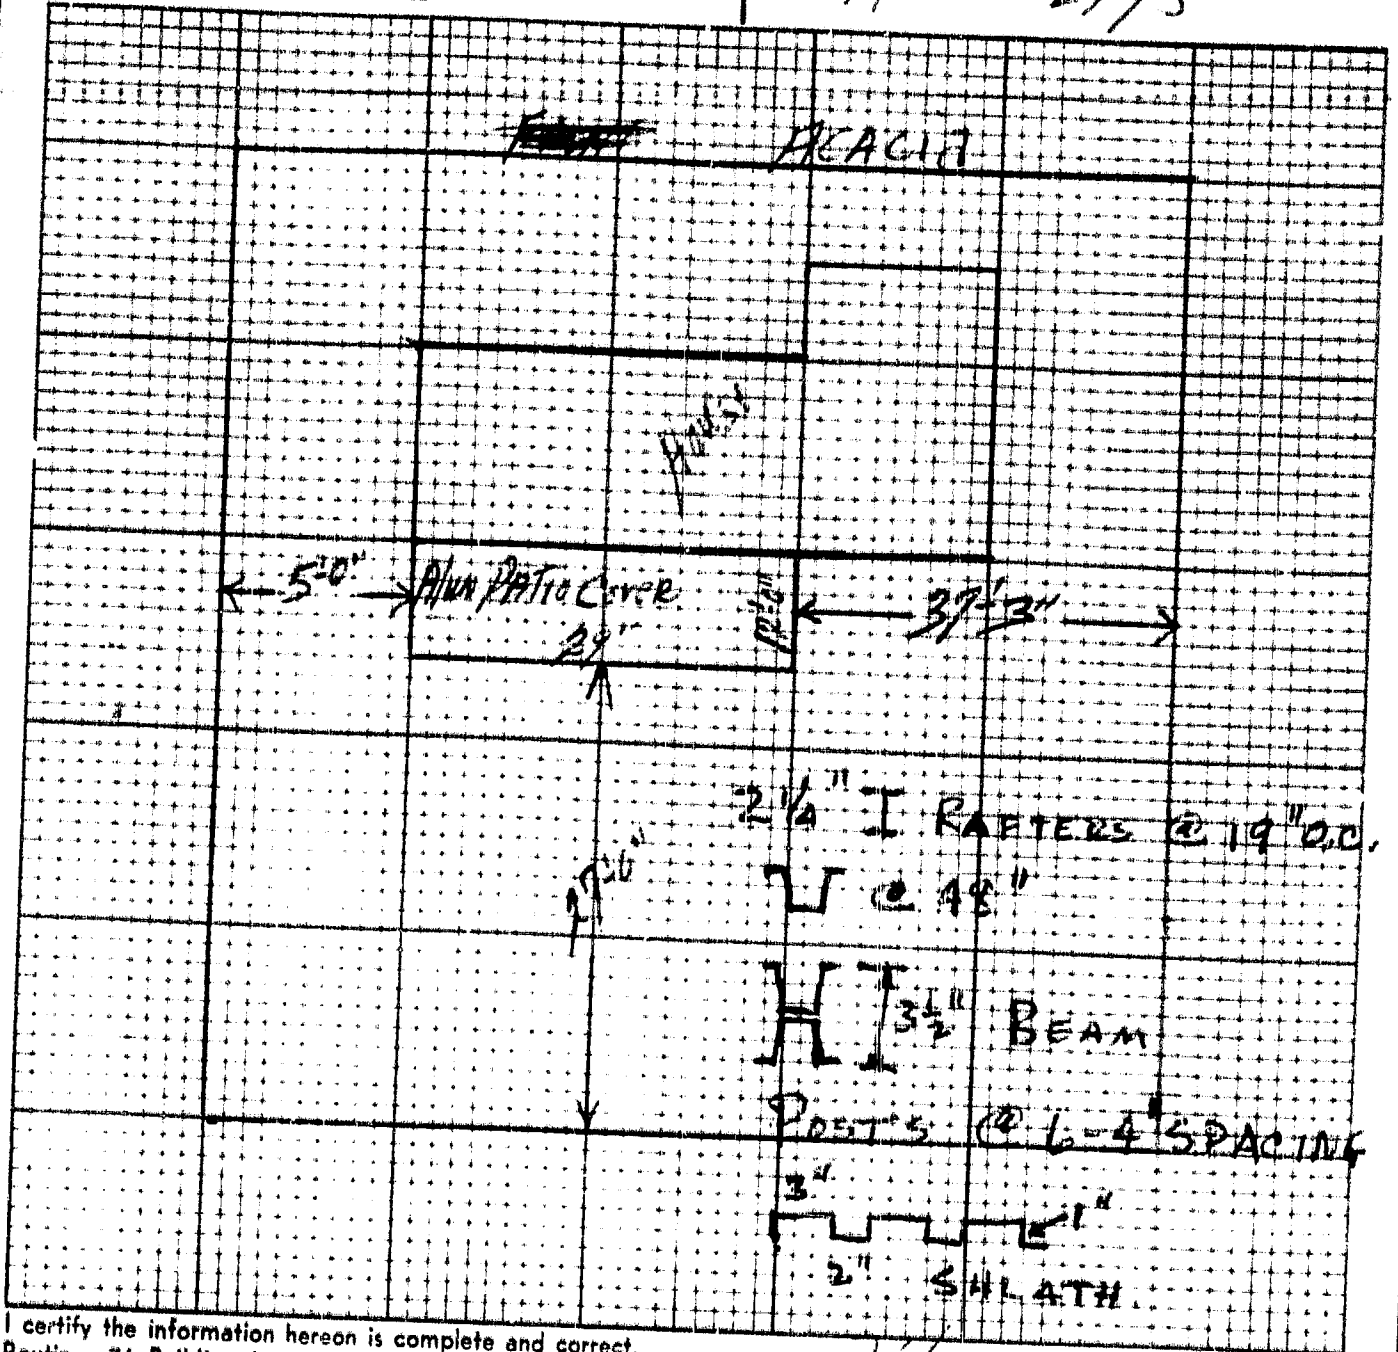 ACACIA
House
5'-0"
Alum PATIO COVER
29'
12'-0"
37'-3"
2 1/4" I RAFTERS @ 19" O.C.
@ 48"
3 1/2" BEAM
POST'S @ 6-4" SPACING
3"
1"
2" SHLATH
I certify the information hereon is complete and correct.